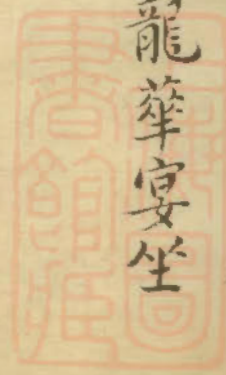 龍華宴坐
上海圖
書館藏